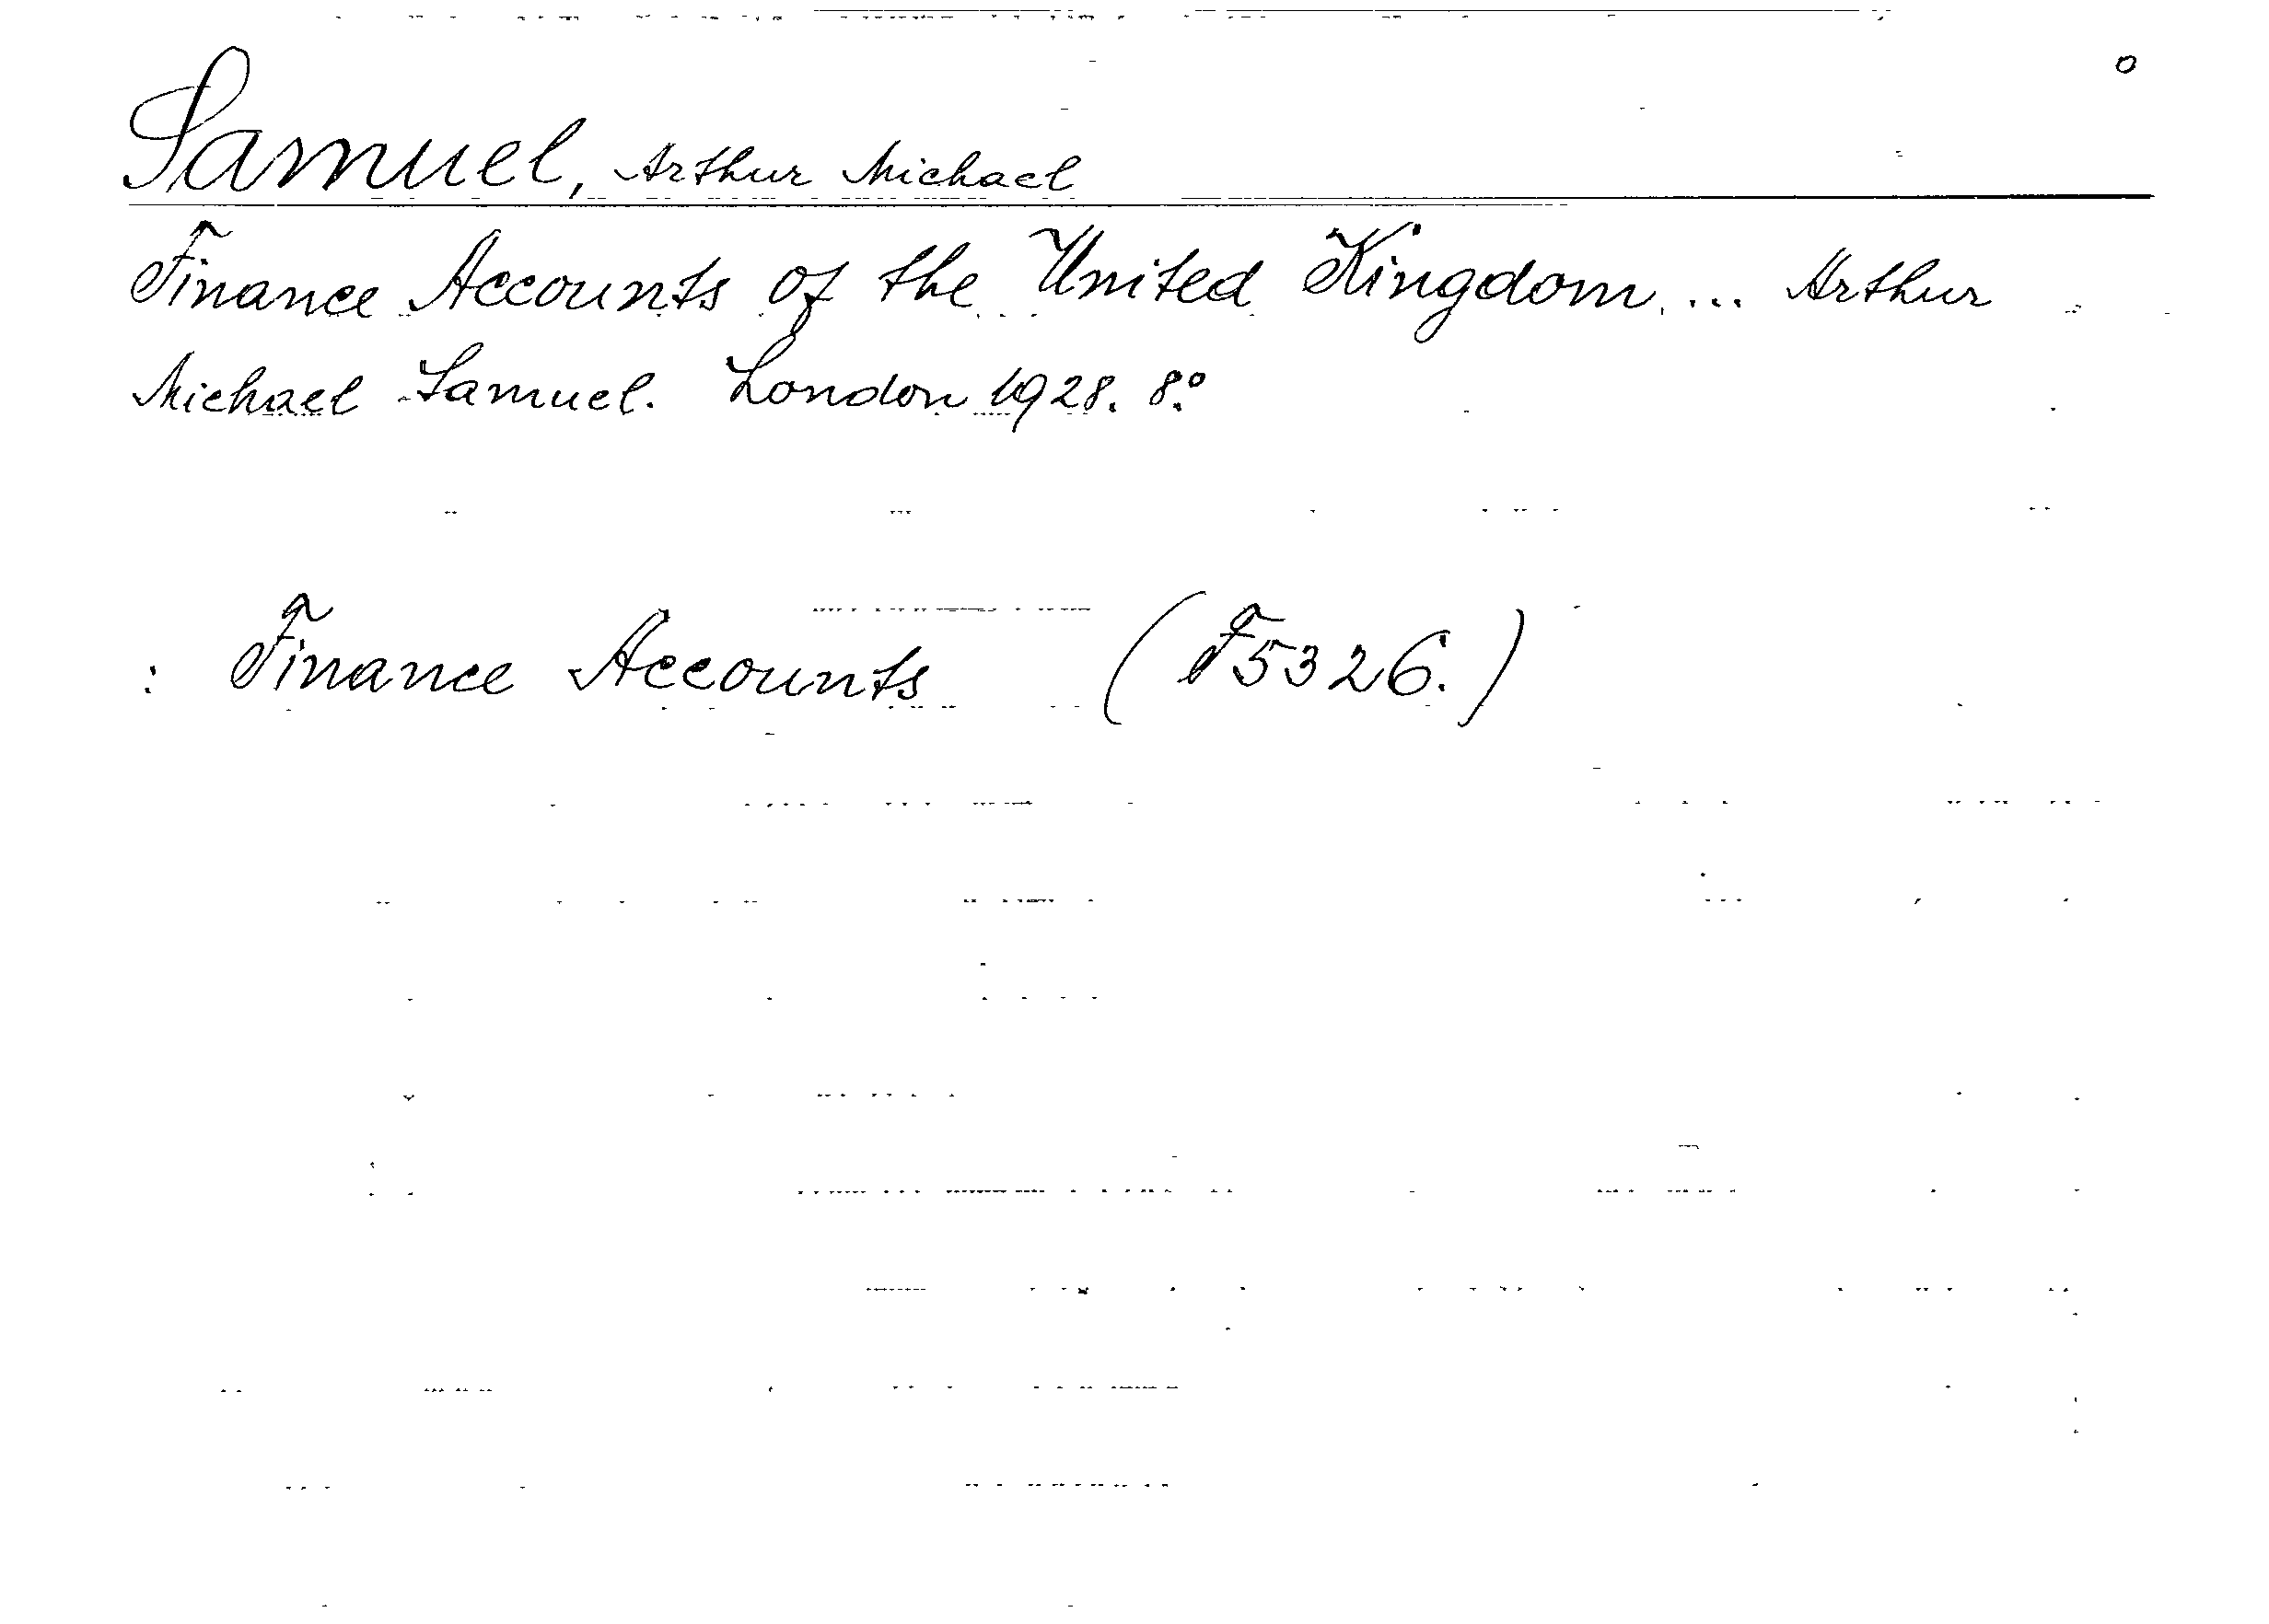 o
Samuel, Arthur Michael
Finance Accounts of the United Kingdom ... Arthur
Michael Samuel. London 1928. 8.º
: Finance Accounts (F5326.)